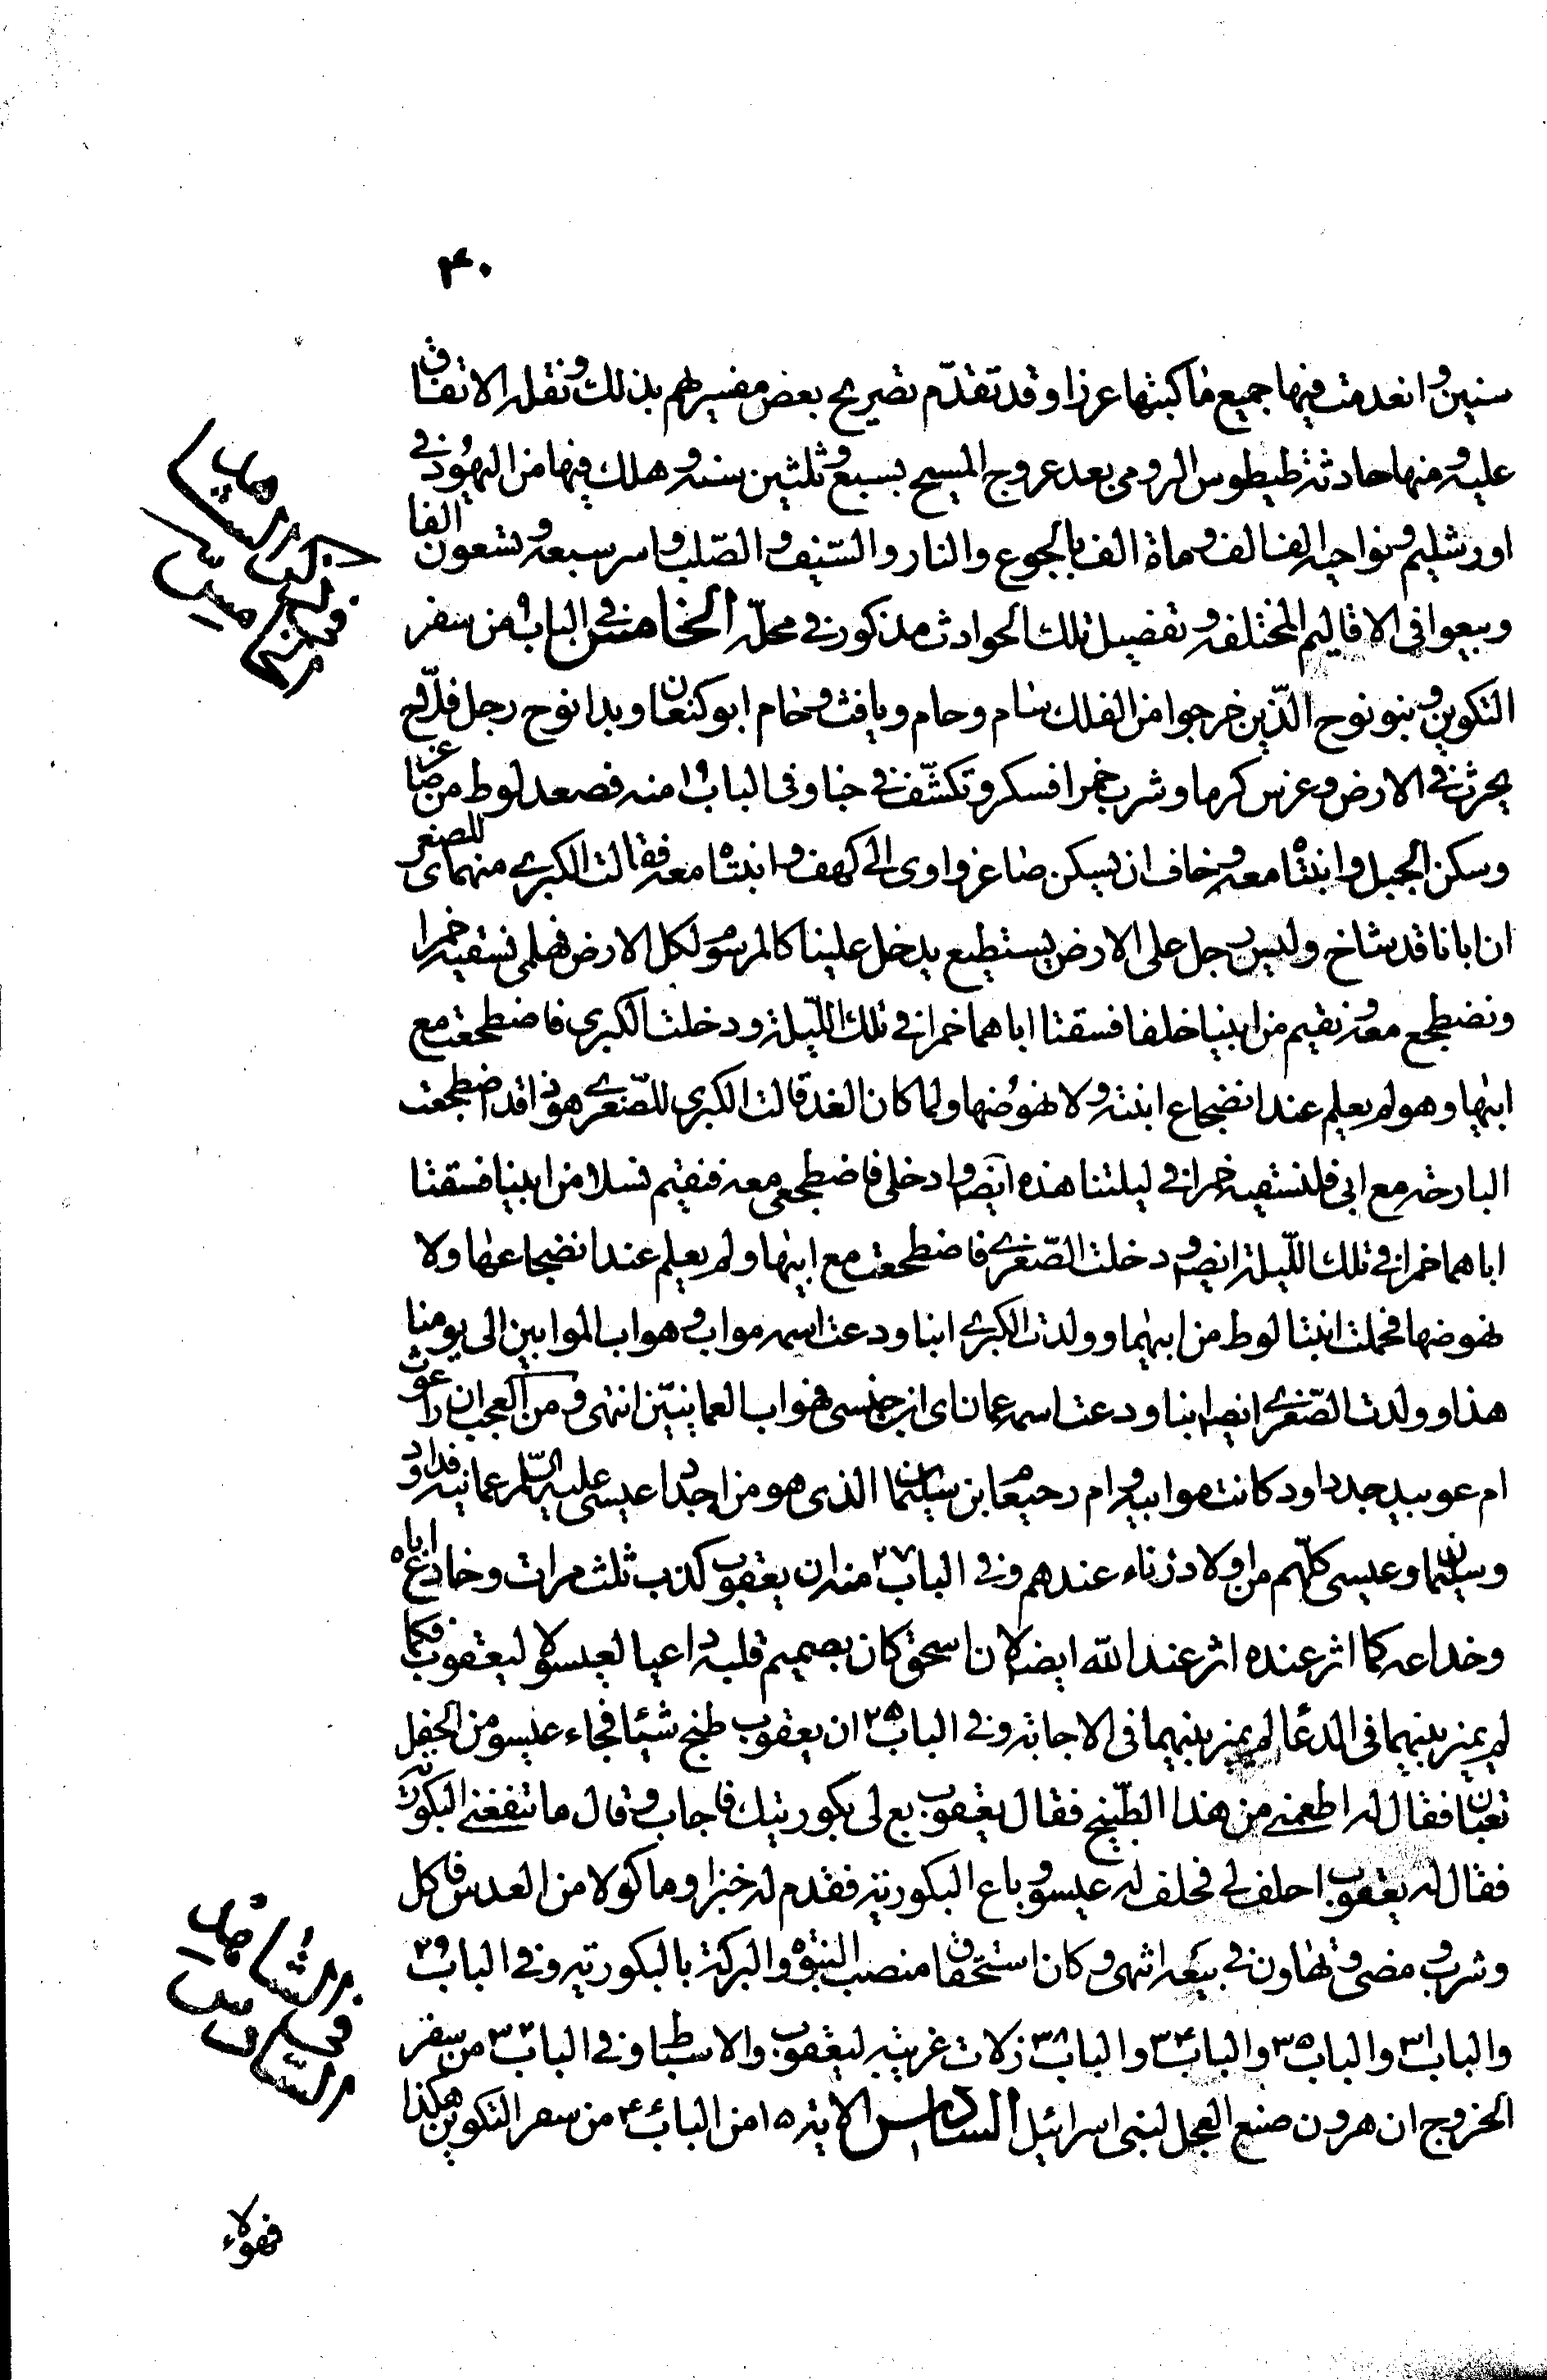 ۴۰
سنين و انعدمت فيها جميع ما كتبها عزرا و قد تقدّم تصريح بعض مفسريهم بذلك و نقله الاتفاق
عليه و منها حادثة طيطوس الرومى بعد عروج المسيح بسبع و ثلثين سنة و هلك فيها من اليهود فى
اورشليم و نواحيه الف الف و ماة الف بالجوع و النار و السّيف و الصّلب و اسر سبعة و تسعون الفا
و بيعوا فى الاقاليم المختلفة و تفصيل تلك الحوادث مذكور فى محلّه الخامس فى الباب ۹ من سفر
التكوين و بنو نوح الّذين خرجوا من الفلك سام و حام و يافث و حام ابو كنعان و بدا نوح رجل فلّاح
يحرث فى الارض و غرس كرما و شرب خمرا فسكر و تكشّف فى خبا و فى الباب ۱۹ منه فصعد لوط من صاغر
و سكن الجبل و ابنتاه معه و خاف ان يسكن صاغر و اوى الى كهف و ابنتاه معه فقالت الكبرى منهما للصغرى
ان ابانا قد شاخ و ليس رجل على الارض يستطيع يدخل علينا كالمرسوم لكل الارض هلمى نسقيه خمرا
و نضطجع معه و نقيم من ابينا خلفا فسقتا اباهما خمرا فى تلك اللّيلة و دخلت الكبرى فاضطجعت مع
ابيها و هو لم يعلم عند انضجاع ابنته و لا نهوضها و لما كان الغد قالت الكبرى للصّغرى هوذا قد اضطجعت
البارحة مع ابى فلنسقيه خمرا فى ليلتنا هذه ايضا و ادخلى فاضطجعى معه فنقيم نسلا من ابينا فسقتا
اباهما خمرا فى تلك اللّيلة ايضا و دخلت الصّغرى فاضطجعت مع ابيها و لم يعلم عند انضجاعها و لا
نهوضها فحملت ابنتا لوط من ابيهما و ولدت الكبرى ابنا و دعت اسمه مواب و هو اب الموابيين الى يومنا
هذا و ولدت الصّغرى ايضا ابنا و دعت اسمه عمان اى ابن جنسى فهو اب العمانيّين انتهى و من العجب ان راعوث
ام عوبيد جد داود كانت موابية و ام رحبعام ابن سليمان الذى هو من اجداد عيسى عليه السّلم عمانية فداود
و سليمان و عيسى كلّهم من اولاد زناء عندهم و فى الباب ۲۷ منه ان يعقوب كذب ثلث مرات و خادع اباه
و خداعه كما اثر عنده اثر عند الله ايضا لان اسحق كان بصميم قلبه داعيا لعيسو لا ليعقوب فكما
لم يميز بينهما فى الدعا لم يميز بينهما فى الاجابة و فى الباب ۲۵ ان يعقوب طبخ شيئا فجاء عيسو من الحقل
تعبان فقال له اطعمنى من هذا الطّبيخ فقال يعقوب بع لى بكوريتك فاجاب و قال ما تنفعنى البكورية
فقال له يعقوب احلف لى فحلف له عيسو و باع البكورية فقدم له خبزا و ماكولا من العدس فاكل
و شرب و مضى و تهاون فى بيعه انتهى و كان استحقاق منصب النبوة و البركة بالبكورية و فى الباب ۲۹
و الباب ۳۱ و الباب ۳۵ و الباب ۳۴ و الباب ۳۸ زلات غريبة ليعقوب و الاسباط و فى الباب ۳۲ من سفر
الخروج ان هرون صنع العجل لبنى اسرائيل السادس الاية ۱۵ من الباب ۴۶ من سفر التكوين هكذا
فى الشاهد
السّادس
فهولاء